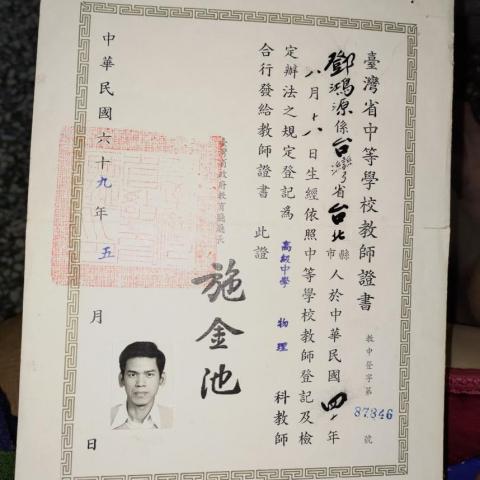 臺灣省中等學校教師證書
教中登字第87846號
鄧鴻源係台灣省台北縣市人於中華民國四十年
八月十八日生經依照中等學校教師登記及檢
定辦法之規定登記為高級中學物理科教師
合行發給教師證書此證
臺灣省政府教育廳廳長
施金池
中華民國六十九年五月日